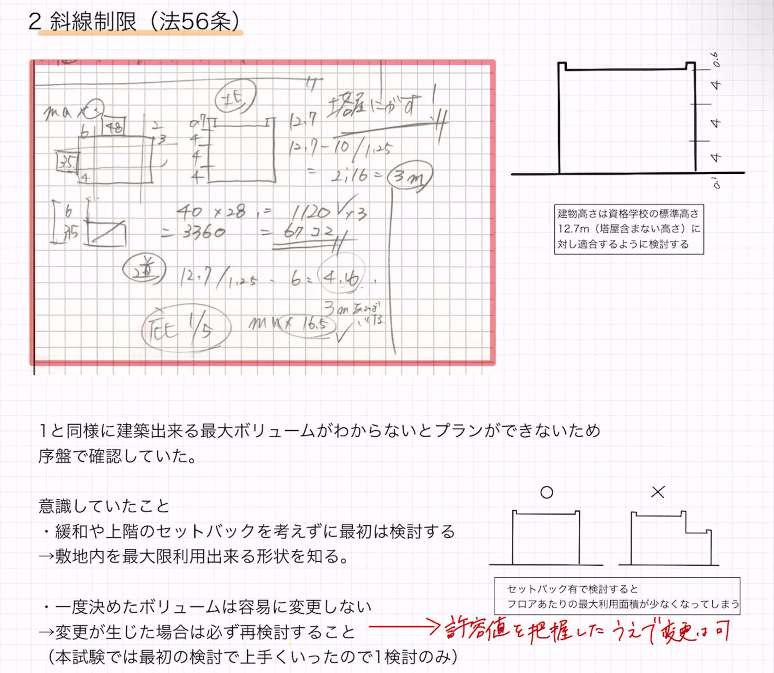 2 斜線制限（法56条）
max
48
35
0.7
4
4
4
12.7
塔屋にがす!
12.7-10/1.25
= 2.16 = 3m
6
35
40 × 28 = 1120 ✓ ×3
= 3360 = 6722
道 12.7/1.25 - 6 = 4.16
1/5
max 16.5
3m
0.6
4
4
4
0.1
建物高さは資格学校の標準高さ
12.7m（塔屋含まない高さ）に
対し適合するように検討する
1と同様に建築出来る最大ボリュームがわからないとプランができないため
序盤で確認していた。
意識していたこと
・緩和や上階のセットバックを考えずに最初は検討する
→敷地内を最大限利用出来る形状を知る。
○ ×
セットバック有で検討すると
フロアあたりの最大利用面積が少なくなってしまう
・一度決めたボリュームは容易に変更しない
→変更が生じた場合は必ず再検討すること
許容値を把握したうえで変更は可
（本試験では最初の検討で上手くいったので1検討のみ）